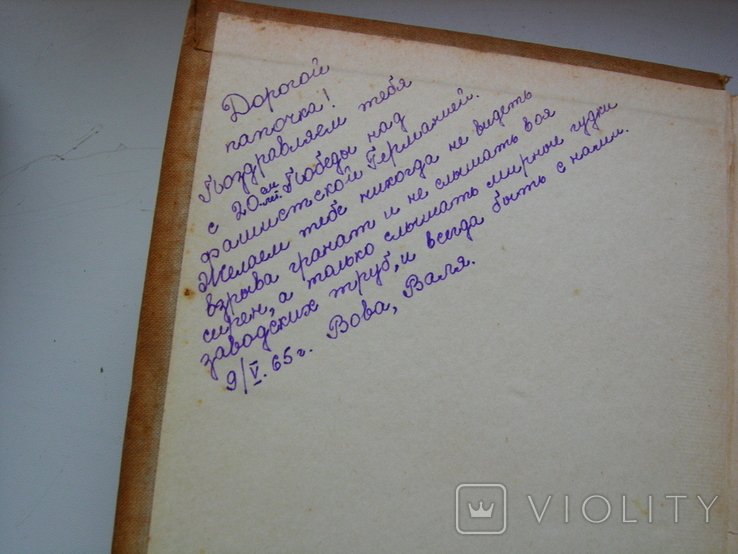 Дорогой
папочка!
Поздравляем тебя
с 20 летием Победы над
фашистской Германией.
Желаем тебе никогда не видеть
взрыва гранат и не слышать воя
сирен, а только слышать мирные гудки
заводских труб, и всегда быть с нами.
9/V.65г. Вова, Валя.
VIOLITY